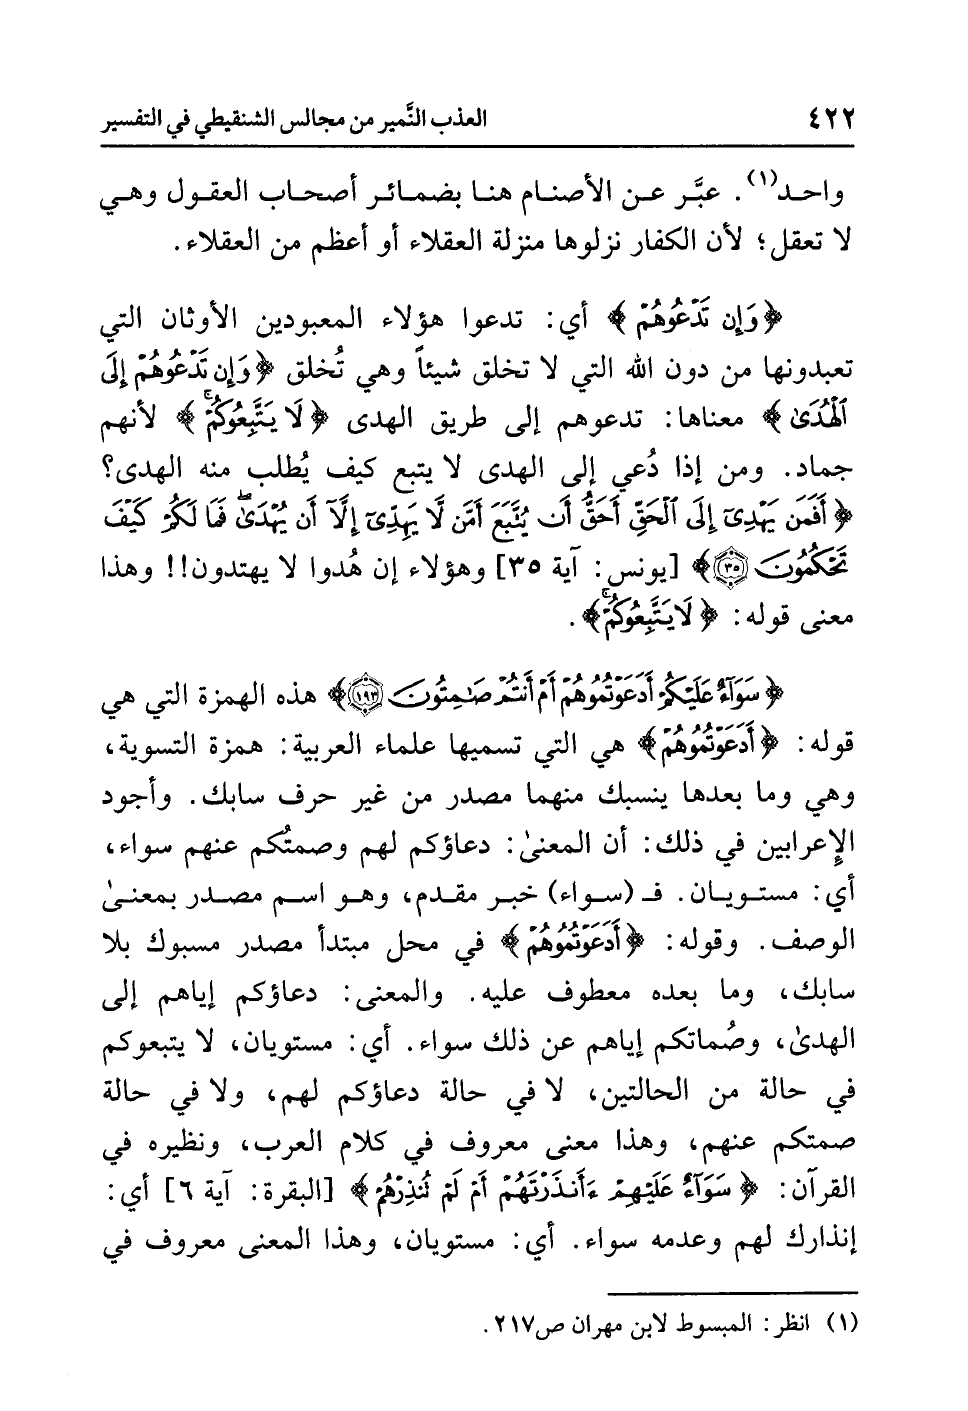 ٤٢٢ العذب النَّمير من مجالس الشنقيطي في التفسير
واحد(١). عبَّر عن الأصنام هنا بضمائر أصحاب العقول وهي
لا تعقل؛ لأن الكفار نزلوها منزلة العقلاء أو أعظم من العقلاء.
﴿وَإِن تَدْعُوهُمْ﴾ أي: تدعوا هؤلاء المعبودين الأوثان التي
تعبدونها من دون الله التي لا تخلق شيئاً وهي تُخلق ﴿وَإِن تَدْعُوهُمْ إِلَى
ٱلْهُدَىٰ﴾ معناها: تدعوهم إلى طريق الهدى ﴿لَا يَتَّبِعُوكُمْۚ﴾ لأنهم
جماد. ومن إذا دُعي إلى الهدى لا يتبع كيف يُطلب منه الهدى؟
﴿أَفَمَن يَهْدِىٓ إِلَى ٱلْحَقِّ أَحَقُّ أَن يُتَّبَعَ أَمَّن لَّا يَهِدِّىٓ إِلَّآ أَن يُهْدَىٰۖ فَمَا لَكُمْ كَيْفَ
تَحْكُمُونَ ٣٥﴾ [يونس: آية ٣٥] وهؤلاء إن هُدوا لا يهتدون!! وهذا
معنى قوله: ﴿لَا يَتَّبِعُوكُمْۚ﴾.
﴿سَوَآءٌ عَلَيْكُمْ أَدَعَوْتُمُوهُمْ أَمْ أَنتُمْ صَـٰمِتُونَ ١٩٣﴾ هذه الهمزة التي هي
قوله: ﴿أَدَعَوْتُمُوهُمْ﴾ هي التي تسميها علماء العربية: همزة التسوية،
وهي وما بعدها ينسبك منهما مصدر من غير حرف سابك. وأجود
الإعرابين في ذلك: أن المعنىٰ: دعاؤكم لهم وصمتُكم عنهم سواء،
أي: مستويان. فـ (سواء) خبر مقدم، وهو اسم مصدر بمعنىٰ
الوصف. وقوله: ﴿أَدَعَوْتُمُوهُمْ﴾ في محل مبتدأ مصدر مسبوك بلا
سابك، وما بعده معطوف عليه. والمعنى: دعاؤكم إياهم إلى
الهدىٰ، وصُماتكم إياهم عن ذلك سواء. أي: مستويان، لا يتبعوكم
في حالة من الحالتين، لا في حالة دعاؤكم لهم، ولا في حالة
صمتكم عنهم، وهذا معنى معروف في كلام العرب، ونظيره في
القرآن: ﴿سَوَآءٌ عَلَيْهِمْ ءَأَنذَرْتَهُمْ أَمْ لَمْ تُنذِرْهُمْ﴾ [البقرة: آية ٦] أي:
إنذارك لهم وعدمه سواء. أي: مستويان، وهذا المعنى معروف في
(١) انظر: المبسوط لابن مهران ص٢١٧.